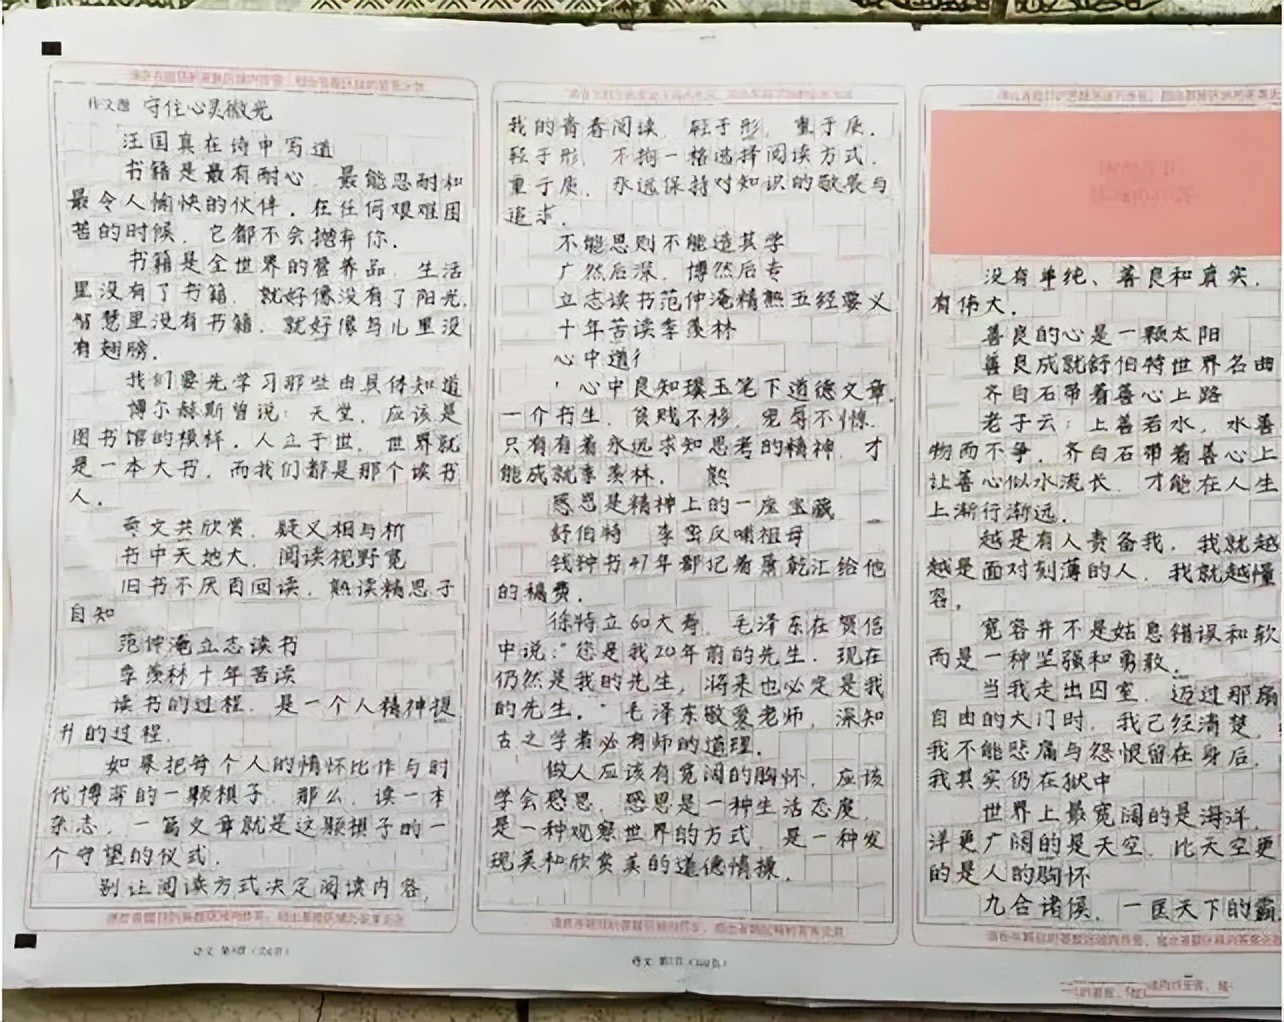 作文题 守住心灵微光
汪国真在诗中写道
书籍是最有耐心、最能忍耐和
最令人愉快的伙伴。在任何艰难困
苦的时候,它都不会抛弃你。
书籍是全世界的营养品,生活
里没有了书籍,就好像没有了阳光,
智慧里没有书籍,就好像鸟儿里没
有翅膀。
我们要先学习那些由具体知道
博尔赫斯曾说:天堂,应该是
图书馆的模样。人立于世,世界就
是一本大书,而我们都是那个读书
人。
奇文共欣赏,疑义相与析
书中天地大,阅读视野宽
旧书不厌百回读,熟读精思子
自知
范仲淹立志读书
季羡林十年苦读
读书的过程,是一个人精神提
升的过程。
如果把每个人的情怀比作与时
代博弈的一颗棋子,那么,读一本
杂志,一篇文章就是这颗棋子的一
个守望的仪式。
别让阅读方式决定阅读内容,
语文 第5页(共6页)
我的青春阅读,轻于形,重于质。
轻于形,不拘一格选择阅读方式,
重于质,永远保持对知识的敬畏与
追求。
不能思则不能造其学
广然后深,博然后专
立志读书范仲淹精熟五经要义
十年苦读季羡林
心中道
心中良知璞玉笔下道德文章,
一介书生,贫贱不移,宠辱不惊,
只有有着永远求知思考的精神,才
能成就季羡林。 熟
感恩是精神上的一座宝藏
舒伯特 李密反哺祖母
钱钟书47年都记着黄乾汇给他
的稿费。
徐特立60大寿,毛泽东在贺信
中说:“您是我20年前的先生,现在
仍然是我的先生,将来也必定是我
的先生。”毛泽东敬爱老师,深知
古之学者必有师的道理。
做人应该有宽阔的胸怀,应该
学会感恩,感恩是一种生活态度,
是一种观察世界的方式,是一种发
现美和欣赏美的道德情操。
没有单纯、善良和真实,
有伟大。
善良的心是一颗太阳
善良成就舒伯特世界名曲
齐白石带着善心上路
老子云:上善若水,水善
物而不争,齐白石带着善心上
让善心似水流长,才能在人生
上渐行渐远。
越是有人责备我,我就越
越是面对刻薄的人,我就越懂
容。
宽容并不是姑息错误和软
而是一种坚强和勇敢。
当我走出囚室,迈过那扇
自由的大门时,我已经清楚,
我不能悲痛与怨恨留在身后,
我其实仍在狱中
世界上最宽阔的是海洋,
洋更广阔的是天空,比天空更
的是人的胸怀
九合诸侯,一匡天下的霸